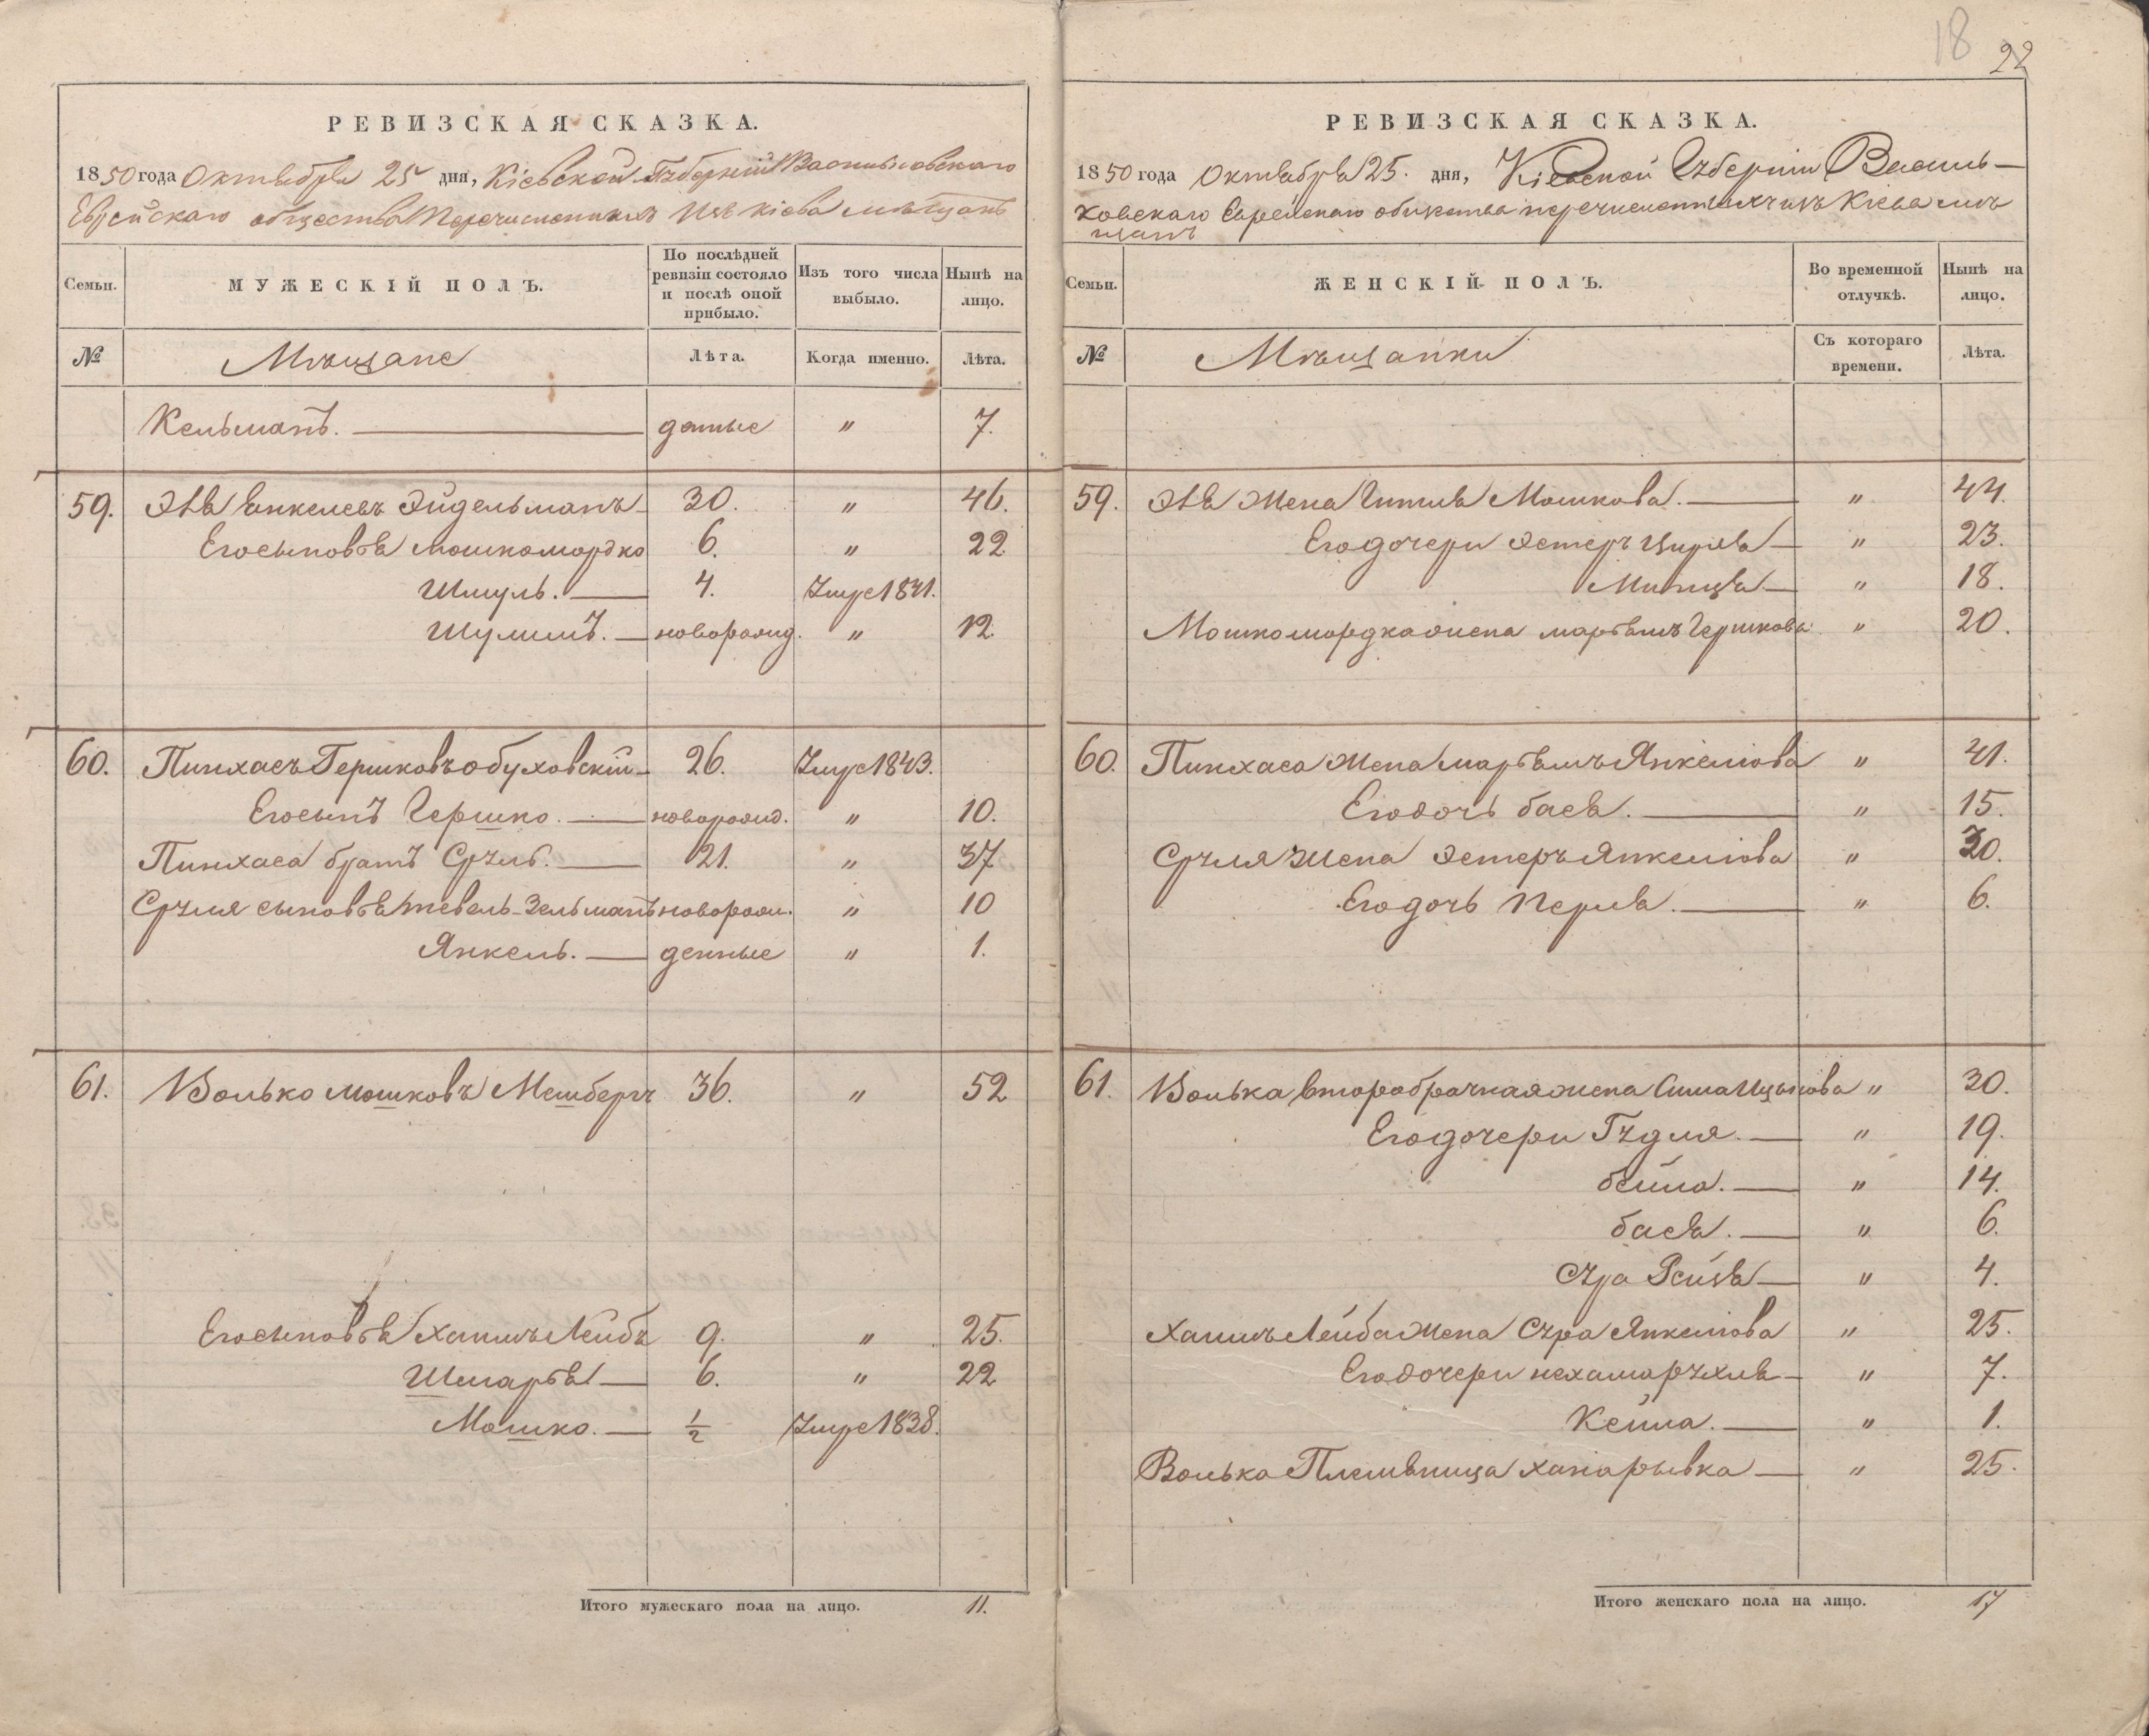 18 22
РЕВИЗСКАЯ СКАЗКА.
1850 года Октября 25 дня, Кіевской Губерніи Васильковскаго
Еврейскаго общества Перечисленныхъ Изъ Кіева мѣщанъ
Семьи.
МУЖЕСКІЙ ПОЛЪ.
По послѣдней ревизіи состояло и послѣ оной прибыло.
Изъ того числа выбыло.
Нынѣ на лицо.
№ Мѣщане Лѣта. Когда именно. Лѣта.
Кельманъ. данные " 7.
59. Янкелевъ Эйдельманъ 30. " 46.
Его сыновья Мошко мордко 6. " 22
Шмуль. 4. Умре 1841.
Шулимъ. новорожд. " 12.
60. Пинхасъ Гершковъ обуховскій 26. Умре 1843.
Его сынъ Гершко. новорожд. " 10.
Пинхаса братъ Сруль. 21. " 37
Сруля сыновья тевель-Зельманъ новорож. " 10
Янкель. денные " 1.
61. Волько мошковъ 36. " 52
Его сыновья Хаимъ Лейбъ 9. " 25.
Шмарья 6. " 22
Мошко. 1/2 Умре 1838.
Итого мужескаго пола на лицо. 11.
РЕВИЗСКАЯ СКАЗКА.
1850 года Октября 25. дня, Кіевской Губерніи Василь-
ковскаго Еврейскаго общества перечисленныхъ изъ Кіева мѣ
щанъ
Семьи.
ЖЕНСКІЙ ПОЛЪ.
Во временной отлучкѣ.
Нынѣ на лицо.
№ Мѣщанки Съ котораго времени. Лѣта.
59. жена Гитля Мошкова. " 44.
Его дочери Эстеръ Цирля " 23.
" 18.
Мошко мордка жена марьямъ Гершкова " 20.
60. Пинхаса жена марьямъ Янкелова " 41.
Его дочь бася. " 15.
Сруля жена Эстеръ Янкелова " 30.
Его дочь Перля. " 6.
61. Волька второбрачная жена Сима Ицькова " 30.
Его дочери Гудля. " 19.
бейла. " 14.
бася. " 6.
Сура Рейзя " 4.
Хаимъ Лейба жена Сура Янкелова " 25.
Его дочери нехама рухля " 7.
Кейла. " 1.
Волька Племяница хана рывка " 25.
Итого женскаго пола на лицо. 17